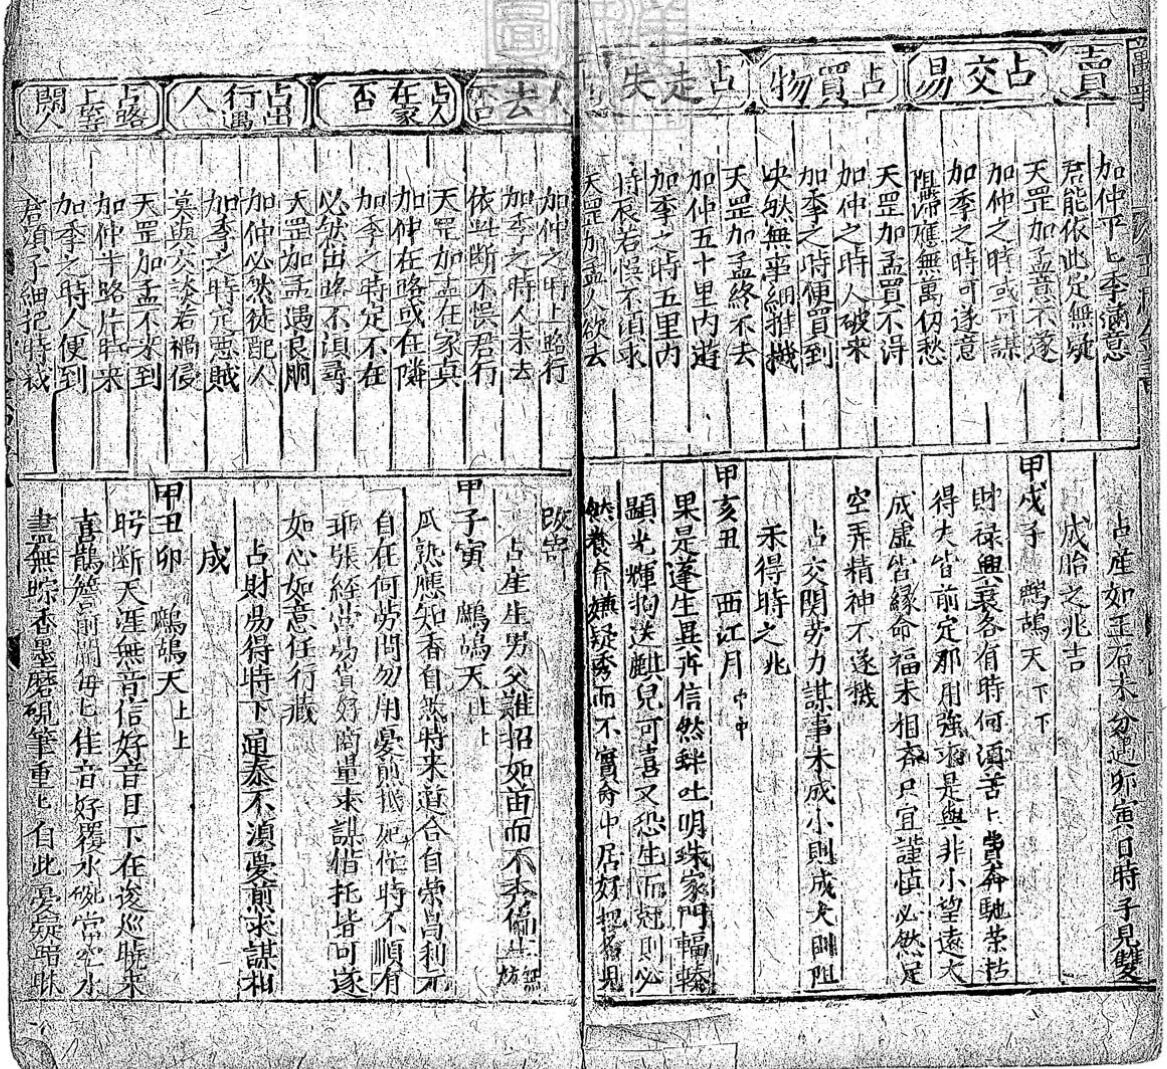 賣
占交易
占買物
占走失
加仲平七季滿意
君能依此定無疑
天罡加孟意不遂
加仲之時或可謀
加季之時可遂意
阻滯應無萬仞愁
天罡加孟買不淂
加仲之時人破來
加季之時便買到
央然無事細推機
天罡加孟終不去
加仲五十里內遊
加季之時五里內
時辰若悞不須求
天罡加孟人欲去
占產如玉石未分連卯寅日時子見雙
成胎之兆吉
甲戌子 鷓鴣天下下
財祿興衰各有時何須苦上費奔馳榮枯
得失皆前定那用強求是與非小望遠大
成虛皆緣命福未相齊只宜謹慎必然是
空弄精神不遂機
占交關勞力謀事未成小則成大則阻
未得時之兆
甲亥丑 西江月中中
果是蓬生異卉信然蚌吐明珠家門輻輳
顯光輝抱送麒兒可喜又恐生而剋則必
然養命嫌疑秀而不實命中居好把名見
去
占人在家否
占出行遇人
占路上逢閑人
加仲之時上路行
加季之時人未去
依此斷不悞君行
天罡加孟在家真
加仲在路或在隣
加季之時定不在
必然出路不須尋
天罡加孟遇良朋
加仲必然徒配人
加季之時定惡賊
莫與交談若禍侵
天罡加孟不來到
加仲半路片時來
加季之時人便到
君須子細把時裁
改嵜
占產生男父難招如苗而不秀偏生無妨
甲子寅 鷓鴣天上上
瓜熟應知香自然時來道合自榮昌利亦
自在何勞問勿用憂煎抵死忙時不順有
乖張經營易貨好商量求謀借托皆可遂
如心如意任行藏
占財易得時下通泰不須憂煎求謀相
成
甲丑卯 鷓鴣天上上
盻斷天涯無音信好音目下在逡巡曉來
喜鵲簷前鬧每七佳音好覆水碗當空水
盡無踪香墨磨硯筆重七自此憂疑暗昧